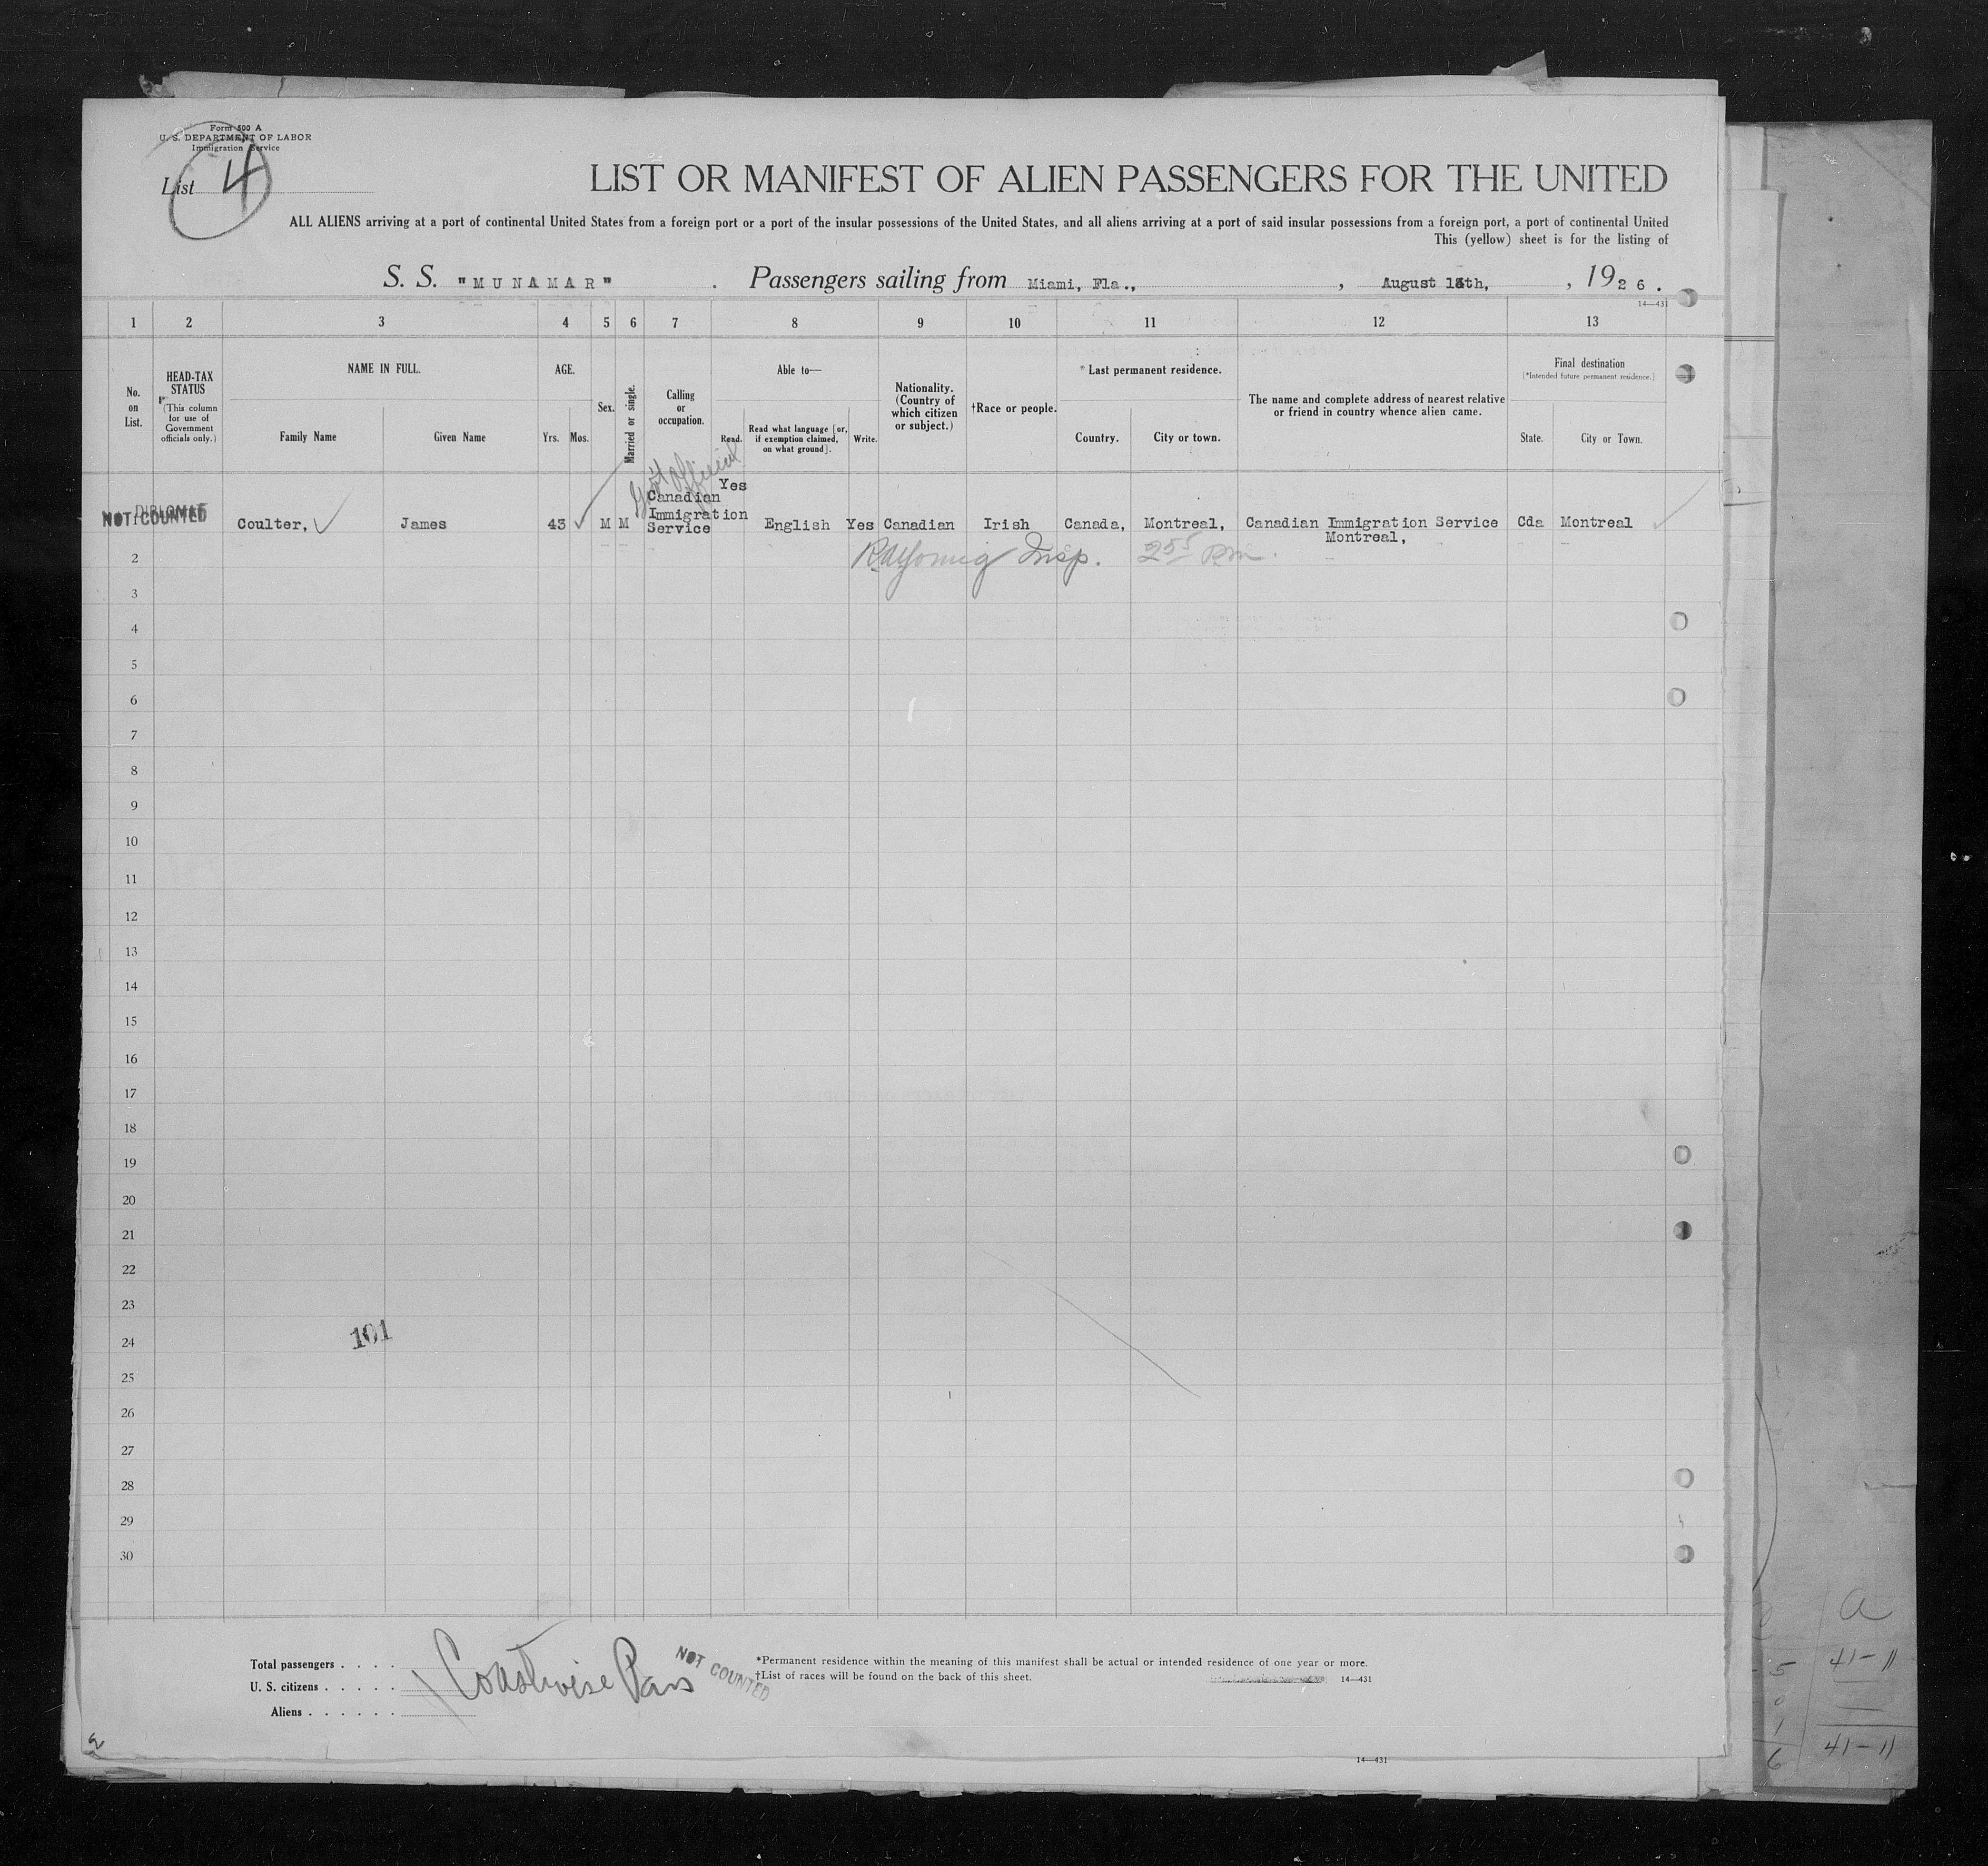 Form 500 A
U. S. DEPARTMENT OF LABOR
Immigration Service
List 4
LIST OR MANIFEST OF ALIEN PASSENGERS FOR THE UNITED
ALL ALIENS arriving at a port of continental United States from a foreign port or a port of the insular possessions of the United States, and all aliens arriving at a port of said insular possessions from a foreign port, a port of continental United
This (yellow) sheet is for the listing of
S. S. "MUNAMAR" . Passengers sailing from Miami, Fla., , August th, , 1926.
14—431
1 2 3 4 5 6 7 8 9 10 11 12 13
No. on List.
HEAD-TAX STATUS
(This column for use of Government officials only.)
NAME IN FULL.
Family Name Given Name
AGE.
Yrs. Mos.
Sex.
Married or single.
Calling or occupation.
Able to—
Read. Read what language [or, if exemption claimed, on what ground]. Write.
Nationality. (Country of which citizen or subject.)
†Race or people.
* Last permanent residence.
Country. City or town.
The name and complete address of nearest relative or friend in country whence alien came.
Final destination
(*Intended future permanent residence.)
State. City or Town.
Gov't Official
DIPLOMAT
NOT COUNTED
Coulter, James 43 M M Canadian Immigration Service Yes English Yes Canadian Irish Canada, Montreal, Canadian Immigration Service Montreal, Cda Montreal
2 Insp. 2 55 pm.
3
4
5
6
7
8
9
10
11
12
13
14
15
16
17
18
19
20
21
22
23
24
101
25
26
27
28
29
30
Total passengers . . . .
U. S. citizens . . . . .
Aliens . . . . . .
Coastwise Pass
NOT COUNTED
*Permanent residence within the meaning of this manifest shall be actual or intended residence of one year or more.
†List of races will be found on the back of this sheet.
14—431
2
14—431
a
5 41-11
0
1
6 41-11